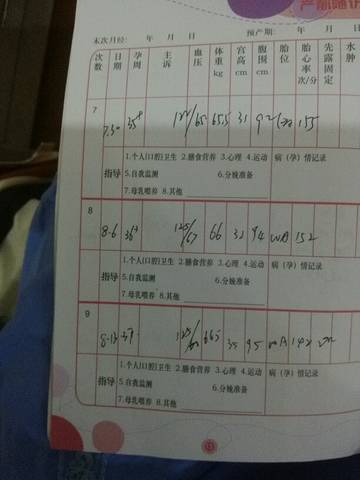 末次月经: 年 月 日 预产期: 年 月 日
次数 日期 孕周 主诉 血压 体重kg 宫高cm 腹围cm 胎位 胎心率次/分 先露固定 水肿
7
7.30 65.5 31 92 155
指导 1.个人(口腔)卫生 2.膳食营养 3.心理 4.运动 病（孕）情记录
5.自我监测 6.分娩准备
7.母乳喂养 8.其他
8
8-6 125/67 66 32 94 152
指导 1.个人(口腔)卫生 2.膳食营养 3.心理 4.运动 病（孕）情记录
5.自我监测 6.分娩准备
7.母乳喂养 8.其他
9
8-13 37 66.5 35 95 142
指导 1.个人(口腔)卫生 2.膳食营养 3.心理 4.运动 病（孕）情记录
5.自我监测 6.分娩准备
7.母乳喂养 8.其他